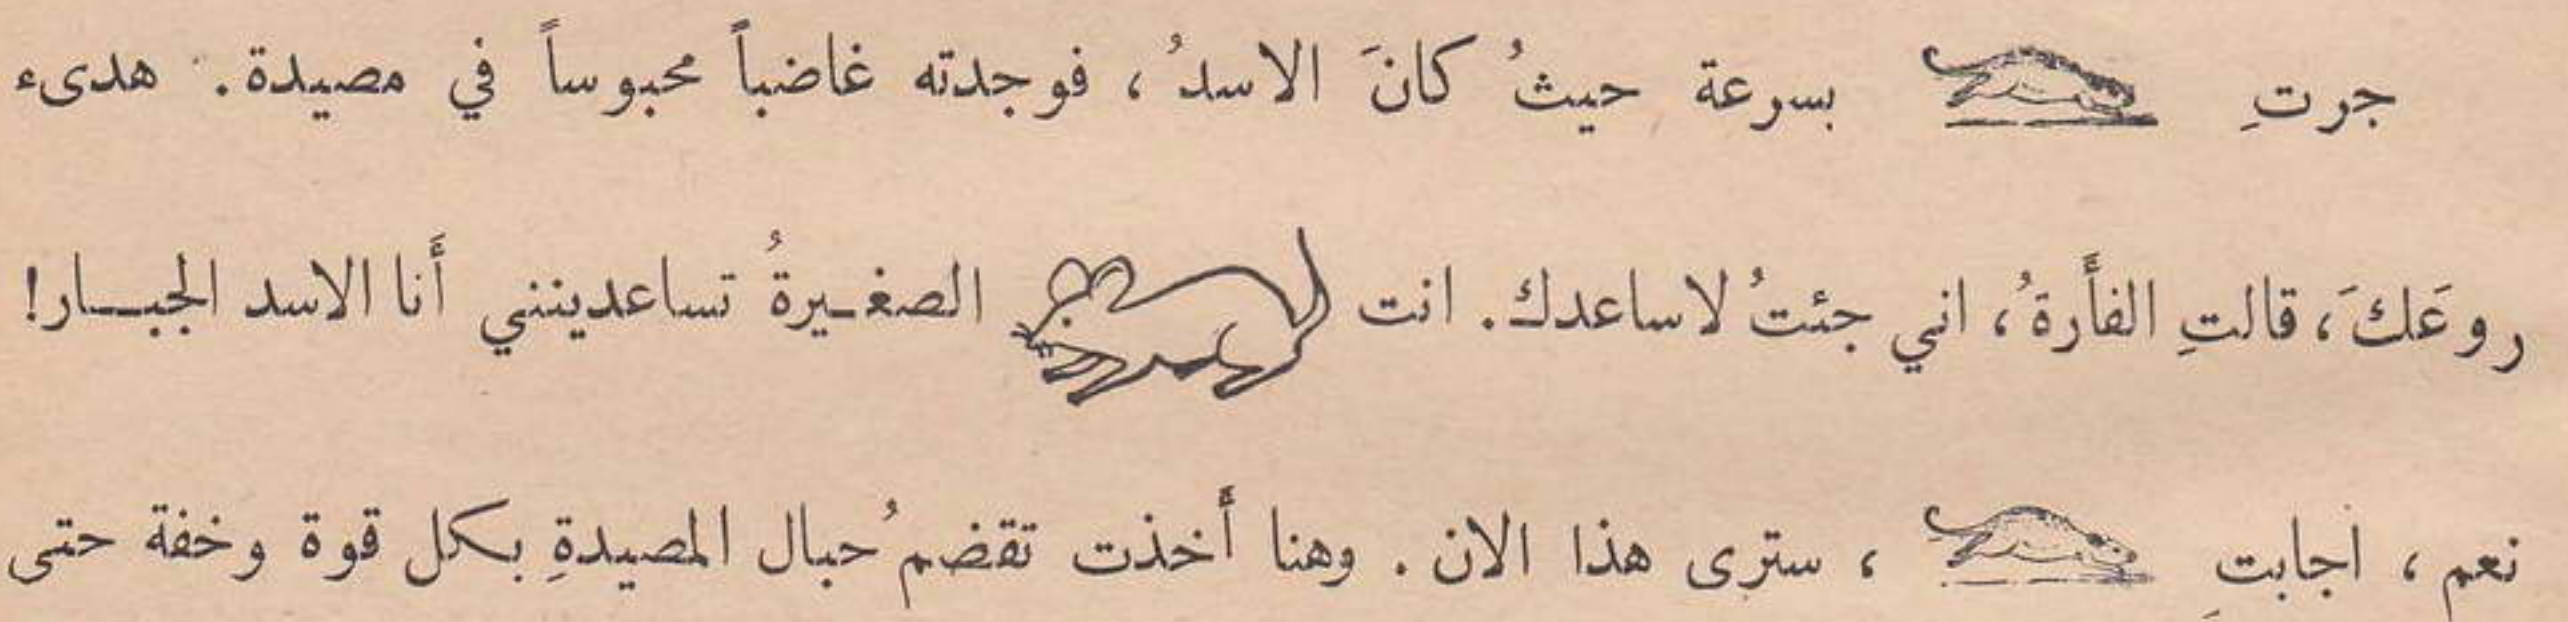 جرتِ بسرعة حيثُ كانَ الاسدُ ، فوجدته غاضباً محبوساً في مصيدة . هدىء
روعَكَ ، قالتِ الفأرةُ ، اني جئتُ لاساعدك . انت الصغيرةُ تساعدينني أنا الاسد الجبار !
نعم ، اجابتِ ، سترى هذا الان . وهنا أخذت تقضمُ حبال المصيدةِ بكل قوة وخفة حتى